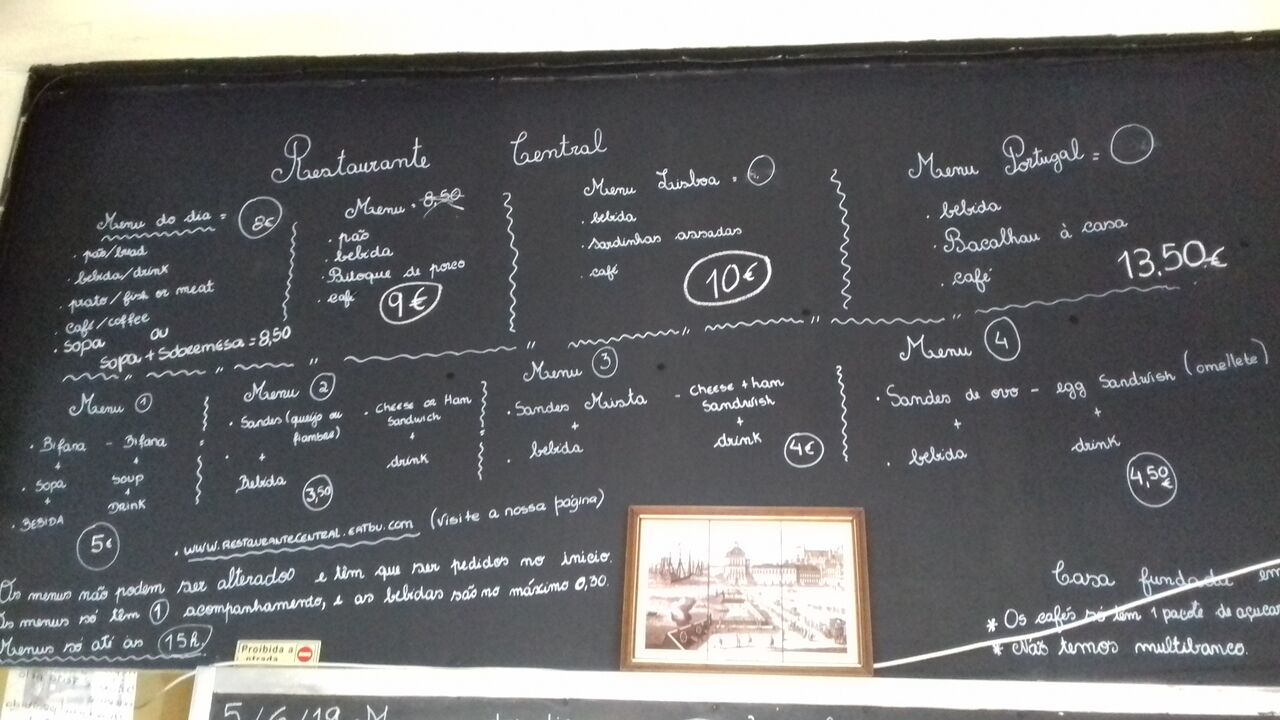 Restaurante Central
Menu do dia = 8€
. pão/bread
. bebida/drink
. prato/fish or meat
. café/coffee
. sopa ou
sopa + sobremesa = 8,50
Menu = 8,50
. pão
. bebida
. Bitoque de porco
. café
9€
Menu Lisboa =
. bebida
. sardinhas assadas
. café
10€
Menu Portugal =
. bebida
. Bacalhau à casa
. café
13.50€
Menu 1
. Bifana - Bifana
+ +
. Sopa Soup
+ +
. BEBIDA Drink
5€
Menu 2
. Sandes (queijo ou fiambre)
. +
Bebida
. Cheese or Ham
Sandwich
+
drink
3,50
Menu 3
. Sandes Mista
+
. bebida
- Cheese + ham
Sandwish
+
drink
4€
Menu 4
. Sandes de ovo - egg Sandwish (omellete)
+ +
. bebida drink
4,50€
. www.RESTAURANTECENTRAL.EATBU.com (visite a nossa página)
Os menus não podem ser alterados e têm que ser pedidos no inicio.
Os menus só têm 1 acompanhamento, e as bebidas são no máximo 0,30.
Menus só até às 15h.
Proibida a
entrada
Casa fundada em
* Os cafés só tem 1 pacote de açucar
* Não temos multibanco.
5/6/19